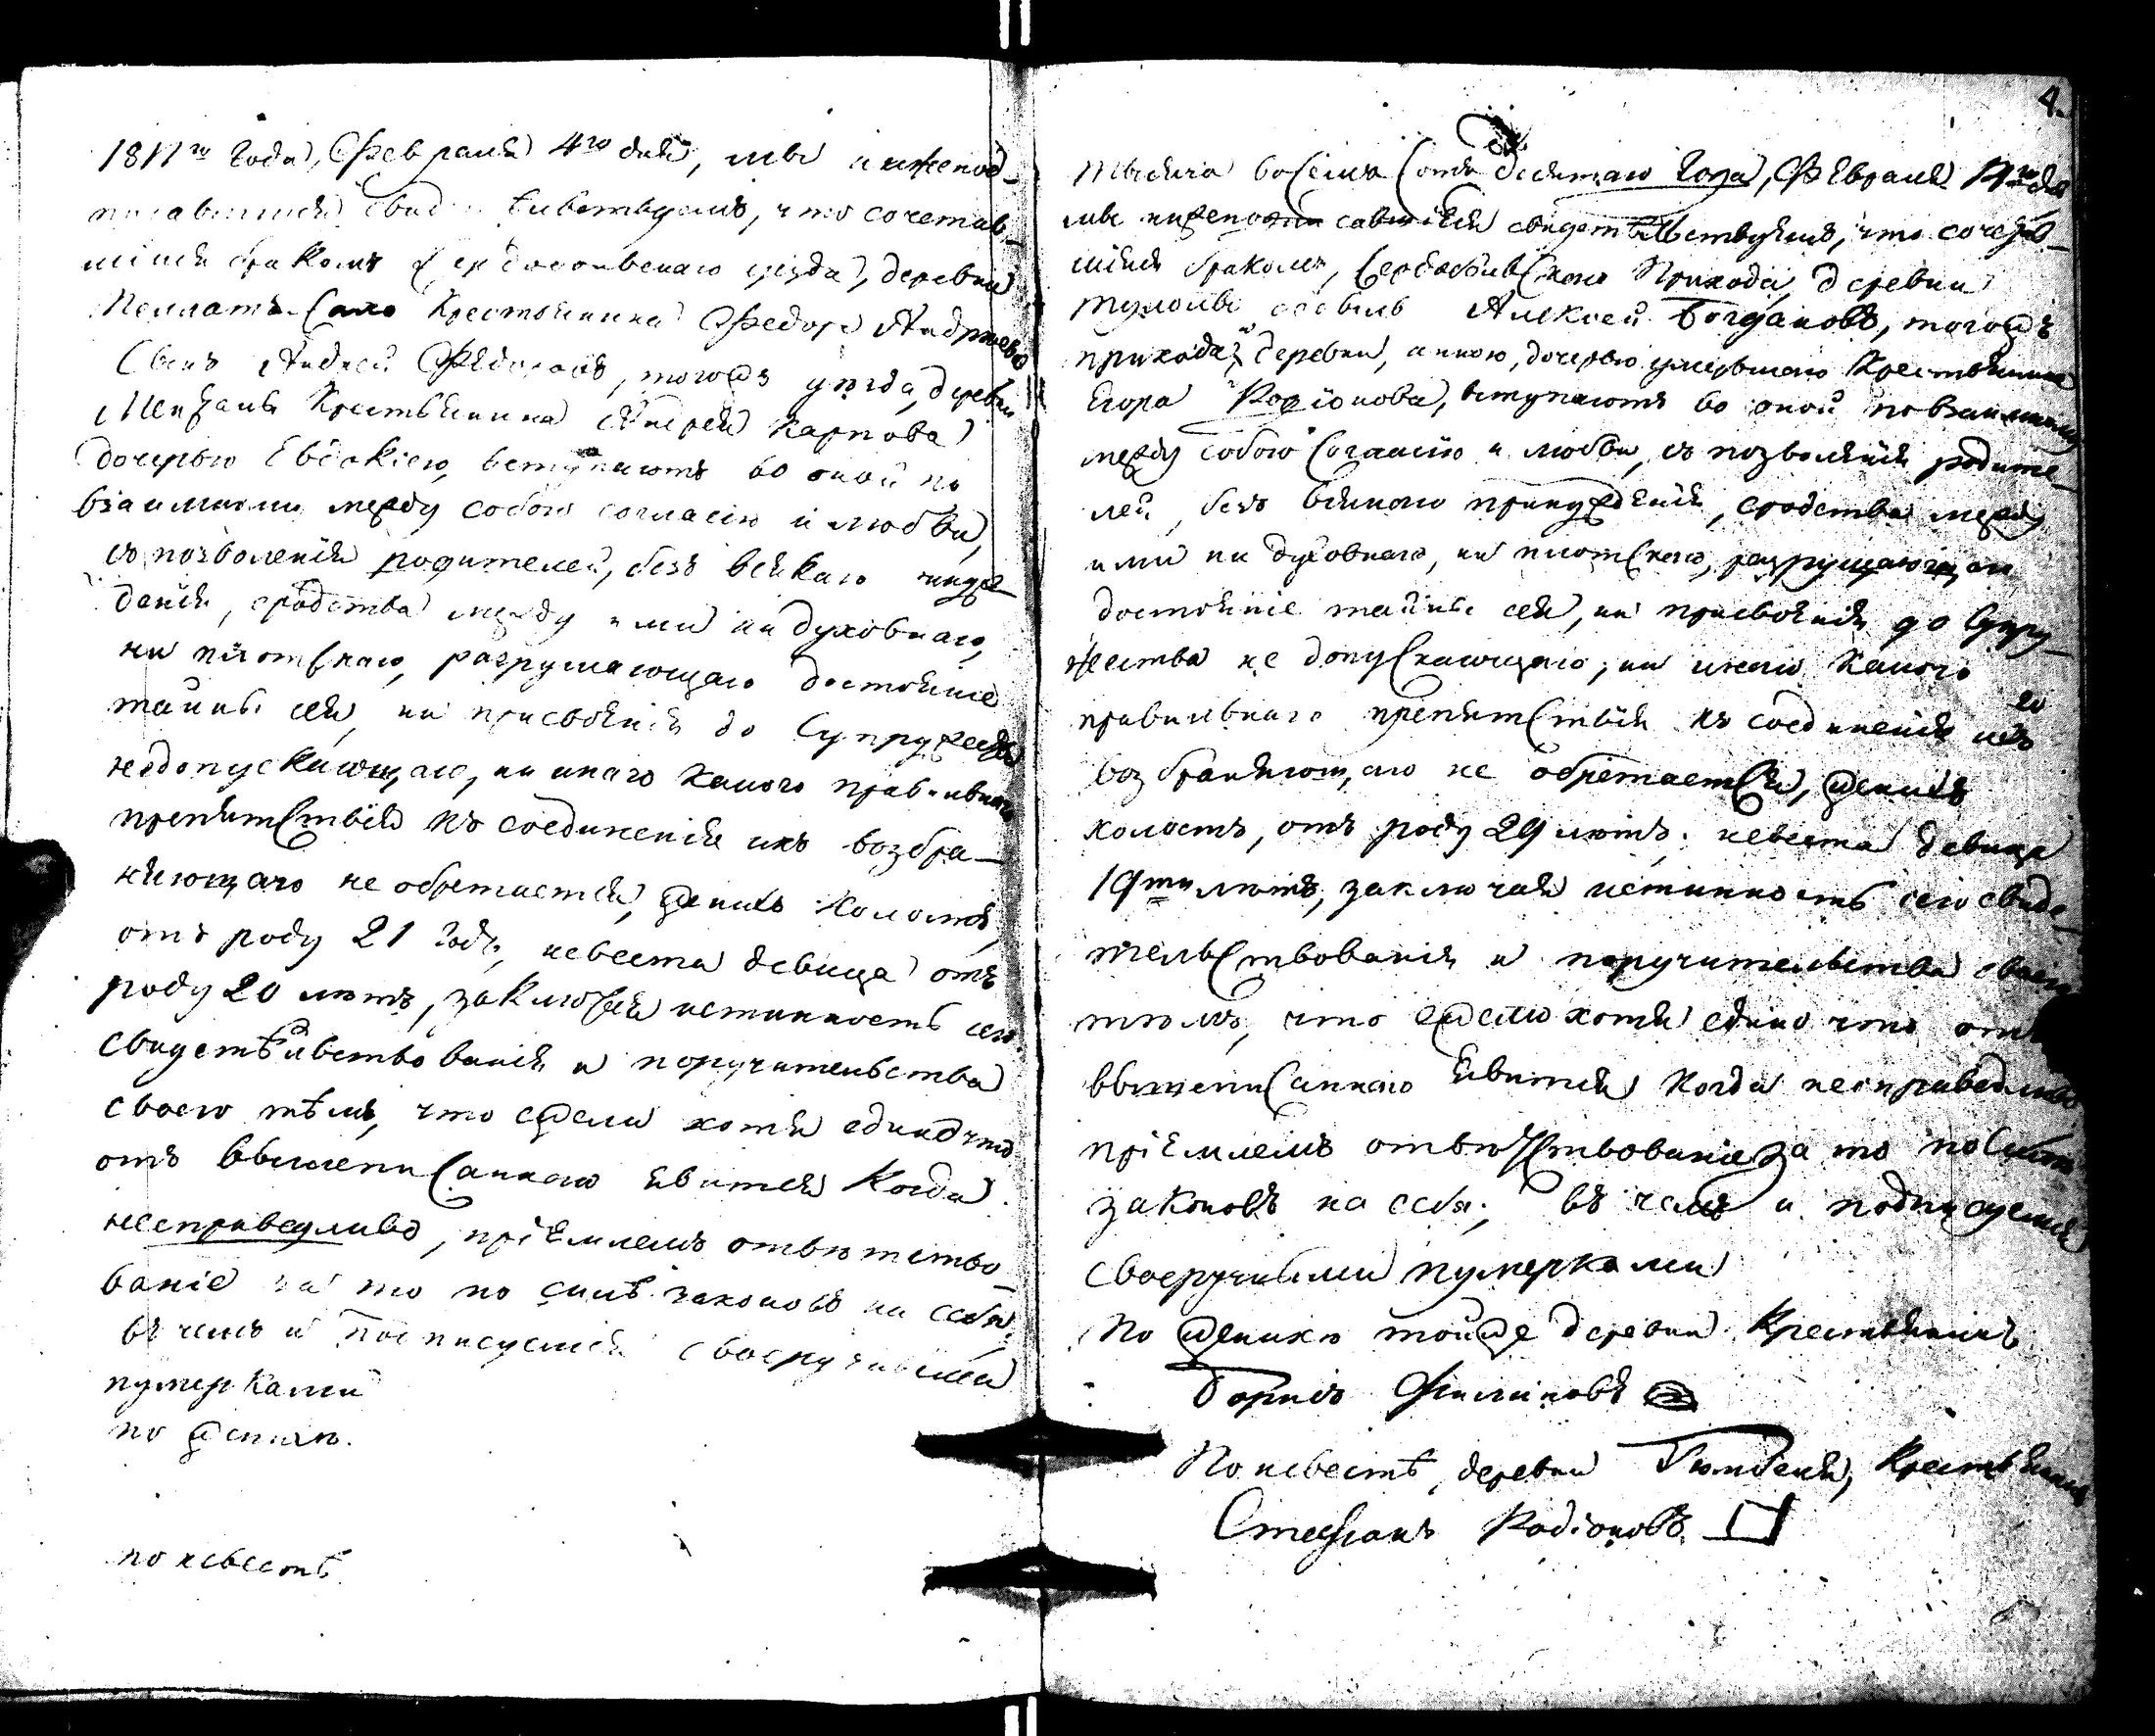 1811го года, Февраля 4го дня, мы нижепод-
писавшися свидѣтельствуемъ, что сочетав-
шися бракомъ Сердобольскаго уезда, деревни
Крестьянина Федора Андреева
сынъ Андрей Федоровъ, тогожъ уѣзда, деревни
Крестьянина Андрея Карпова
дочерью Евдокіею, вступаютъ во оной по
взаимному между собою согласію и любви,
съ позволенія родителей, безъ всякаго принуж-
денія, сродства между ими ни духовнаго,
ни плотскаго, разрушающаго достояніе
тайны сея, ни присвоенія до Супружества
недопускающаго, ни инаго какого правильнаго
препятствія къ соединенія ихъ возбра-
няющаго не обретается, женихъ холостъ,
отъ роду 21 годъ, невеста девица отъ
роду 20 лѣтъ, заключая истинность сего
свидетѣльствованія и поручительства
своего тѣмъ, что ежели хотя едино что
отъ вышеписаннаго явится когда
несправедливо, пріемлемъ отвѣтство-
ваніе за то по силѣ законовъ на себя,
въ чемъ и подписуемся своеручными
нумерками
по женихѣ.
по невестѣ
4.
тысяча восемь сотъ десятаго года, Февраля дня
мы нижеподписавшіяся свидетѣльствуемъ, что сочетав-
шіяся бракомъ, Сердобольскаго Прихода, деревни
Алексей Богдановъ, тогожъ
прихода, деревни, Анною, дочерью умершаго Крестьянина
Егора Родіонова, вступаютъ во оной по взаимному
между собою согласію и любви, съ позволенія родите-
лей, безъ всякаго принужденія, сродства между
ими ни духовнаго, ни плотскаго, разрушающаго
достояніе тайны сея, ни присвоенія до Супру-
жества не допускающаго, ни инаго какого
правильнаго препятствія къ соединенія ихъ
возбраняющаго не обретается, женихъ
холостъ, отъ роду 29 лѣтъ, невеста девица
19ти лѣтъ, заключая истинность сего свиде-
тельствованія и поручительства своего
тѣмъ, что ежели хотя едино что отъ
вышеписаннаго явится когда несправедливо
пріемлемъ отвѣтствованіе за то по силѣ
законовъ на себя; въ чемъ и подписуемся
своеручными нумерками
По женихѣ тойже деревни Крестьянинъ
Борисъ
По невестѣ, деревни Крестьянинъ
Стефанъ Родіоновъ.